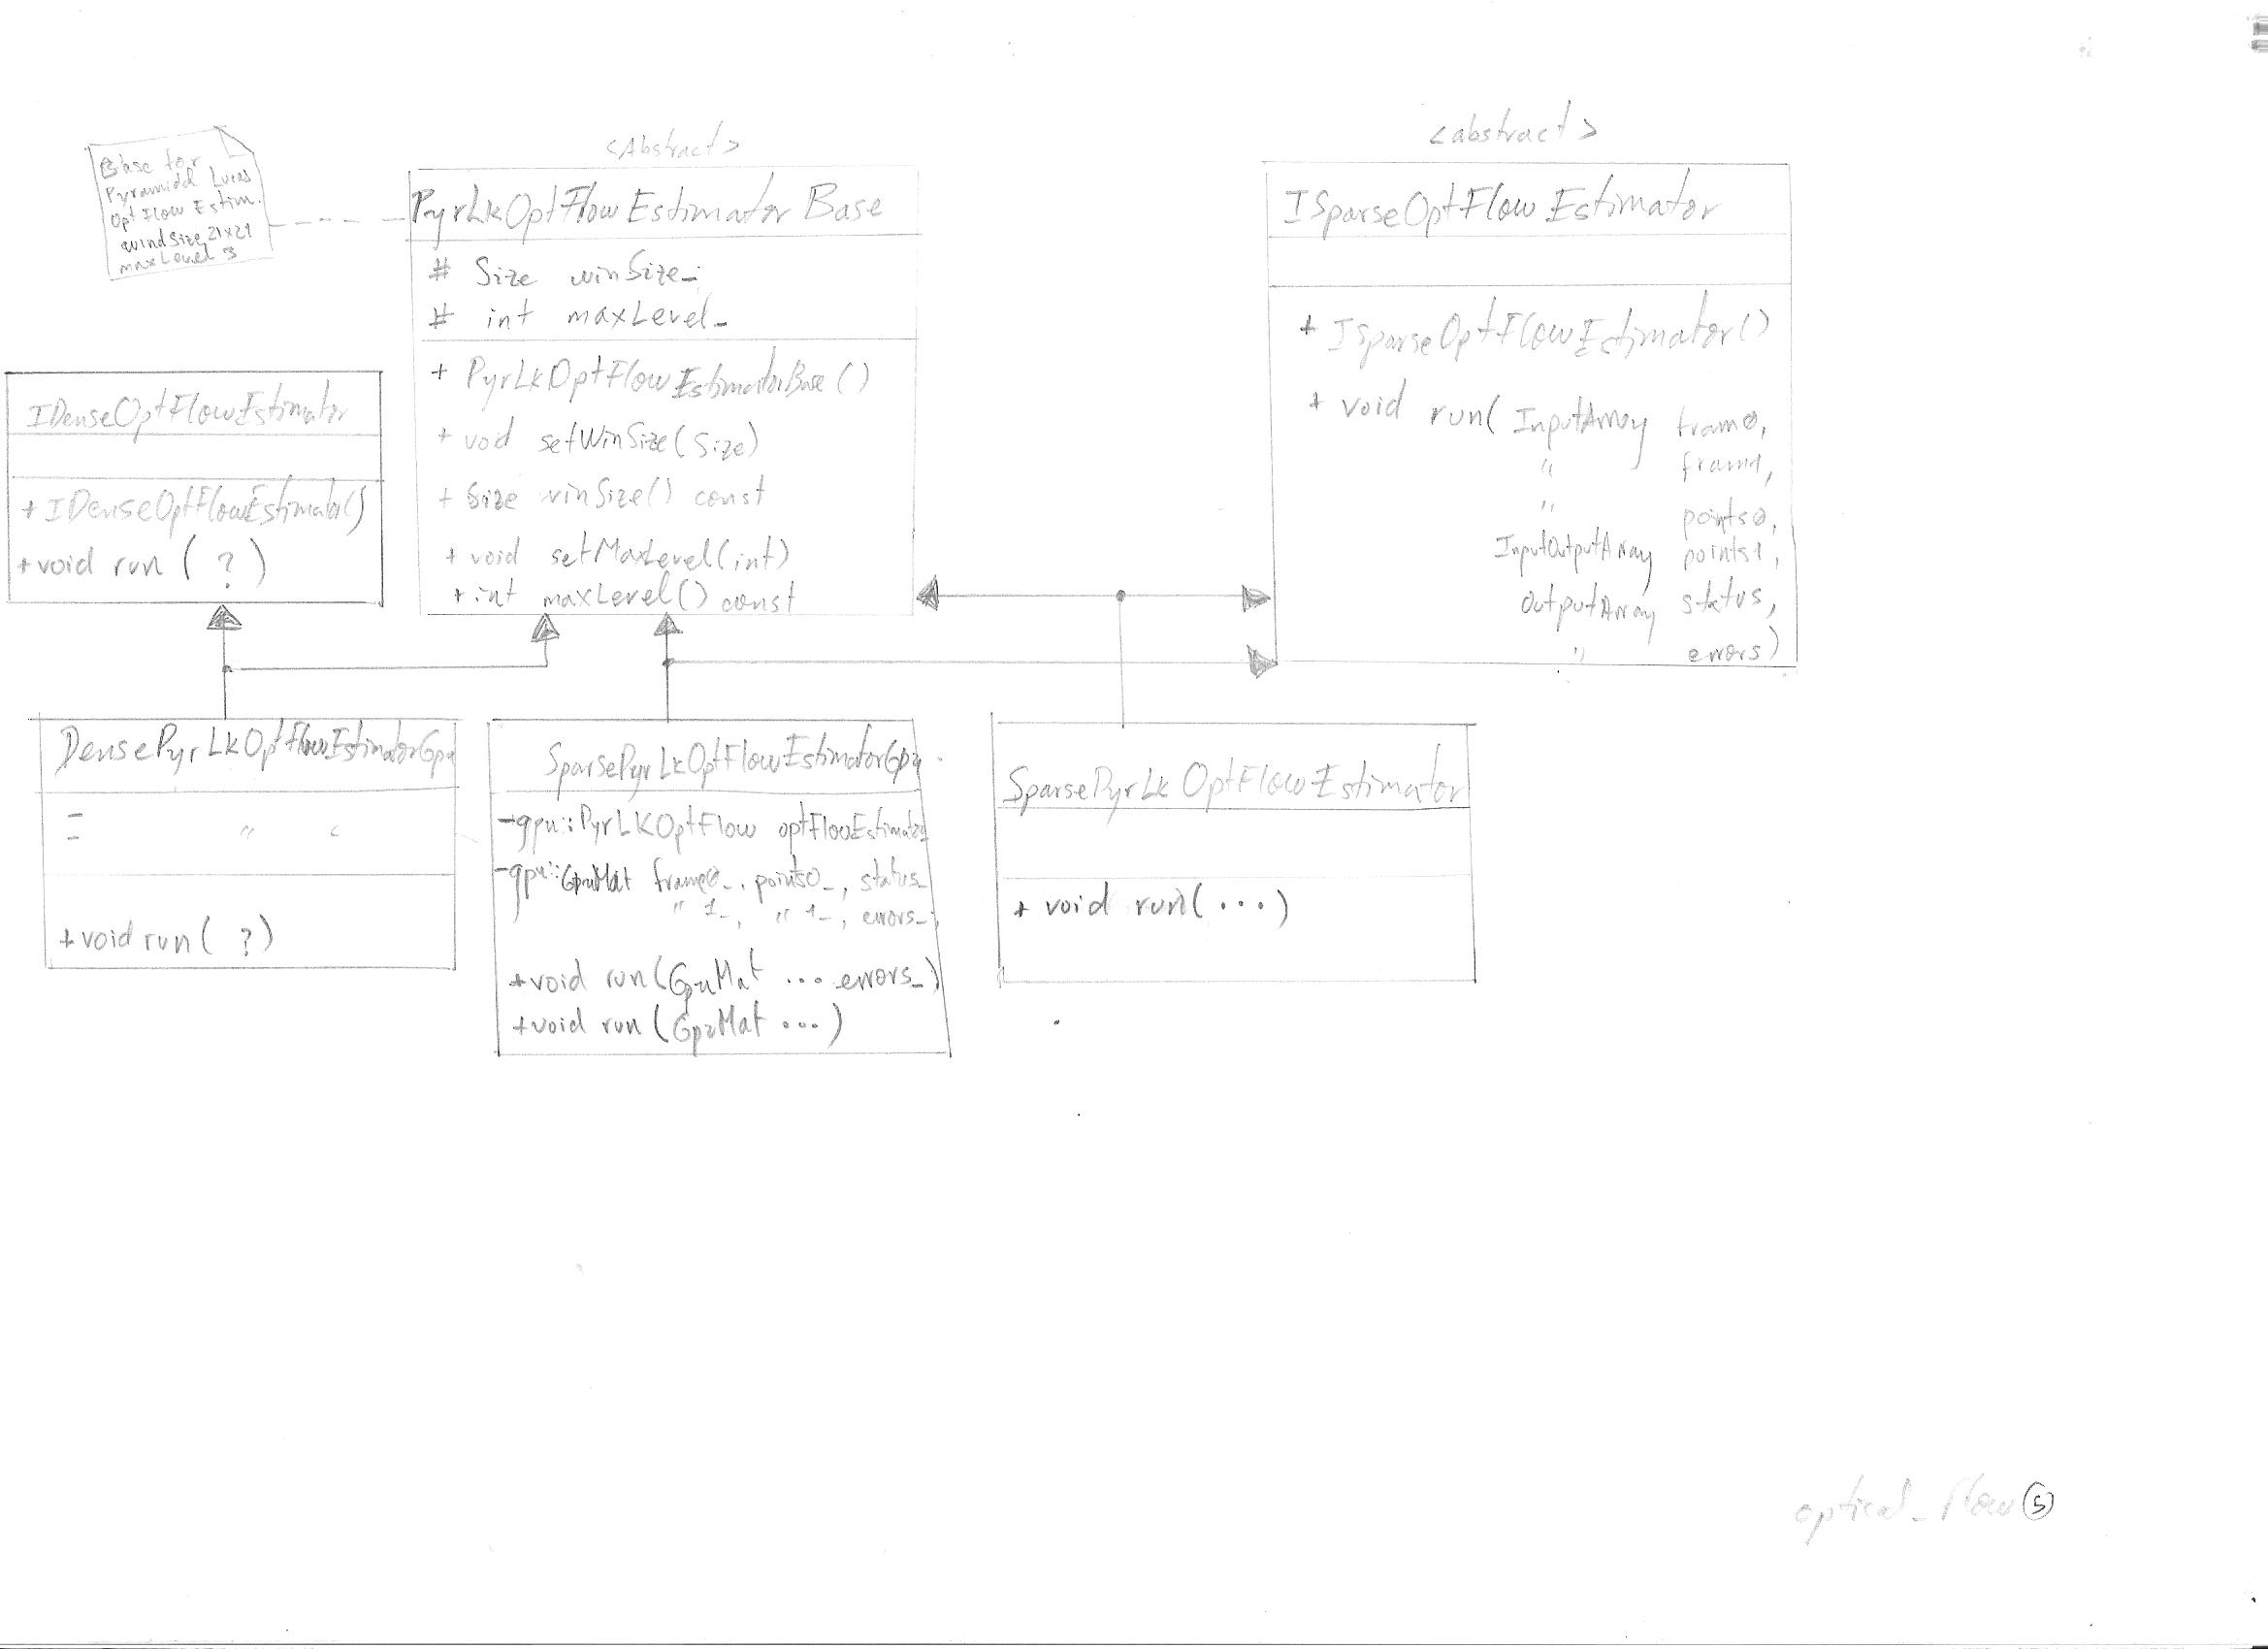 Base for
Pyramidal Lucas
Opt Flow Estim.
windSize 21x21
maxLevel 3
<Abstract>
PyrLkOptFlowEstimator Base
# Size winSize_
# int maxLevel_
+ PyrLkOptFlowEstimatorBase()
+ void setWinSize(Size)
+ Size winSize() const
+ void setMaxLevel(int)
+ int maxLevel() const
<abstract>
ISparseOptFlowEstimator
+ ISparseOptFlowEstimator()
+ void run( InputArray frame0,
" frame1,
" points0,
InputOutputArray points1,
OutputArray status,
" errors)
IDenseOptFlowEstimator
+ IDenseOptFlowEstimator()
+ void run ( ? )
DensePyrLkOptFlowEstimatorGpu
= " "
+ void run( ?)
SparsePyrLkOptFlowEstimatorGpu
- gpu::PyrLKOptFlow optFlowEstimator
- gpu::GpuMat frame0_, points0_, status_
" 1_, " 1_, errors_;
+ void run(GpuMat ... errors_)
+ void run (GpuMat ...)
SparsePyrLkOptFlowEstimator
+ void run(...)
optical_flow 5